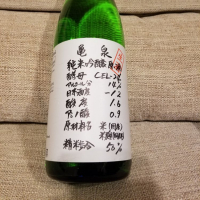 亀泉
純米吟醸原酒
酵母 CEL-24
アルコール分 14%
日本酒度 -12
酸度 1.6
アミノ酸 0.9
原材料 米(国産)
精米歩合 50%